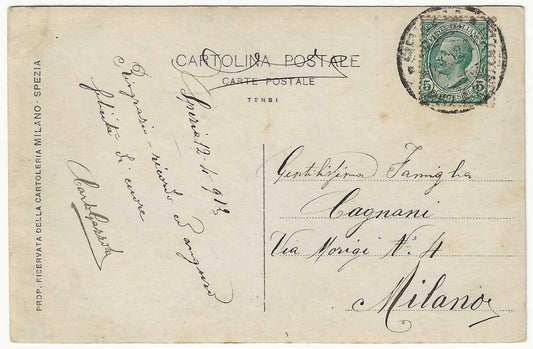 CARTOLINA POSTALE
CARTE POSTALE
TENSI
PROP. RISERVATA DELLA CARTOLERIA MILANO - SPEZIA
Spezia 12.4.913
Ringrazio - ricordo ed auguro
felicità di cuore
Gentilissima Famiglia
Cagnani
Via Morigi N. 4
Milano
5
5